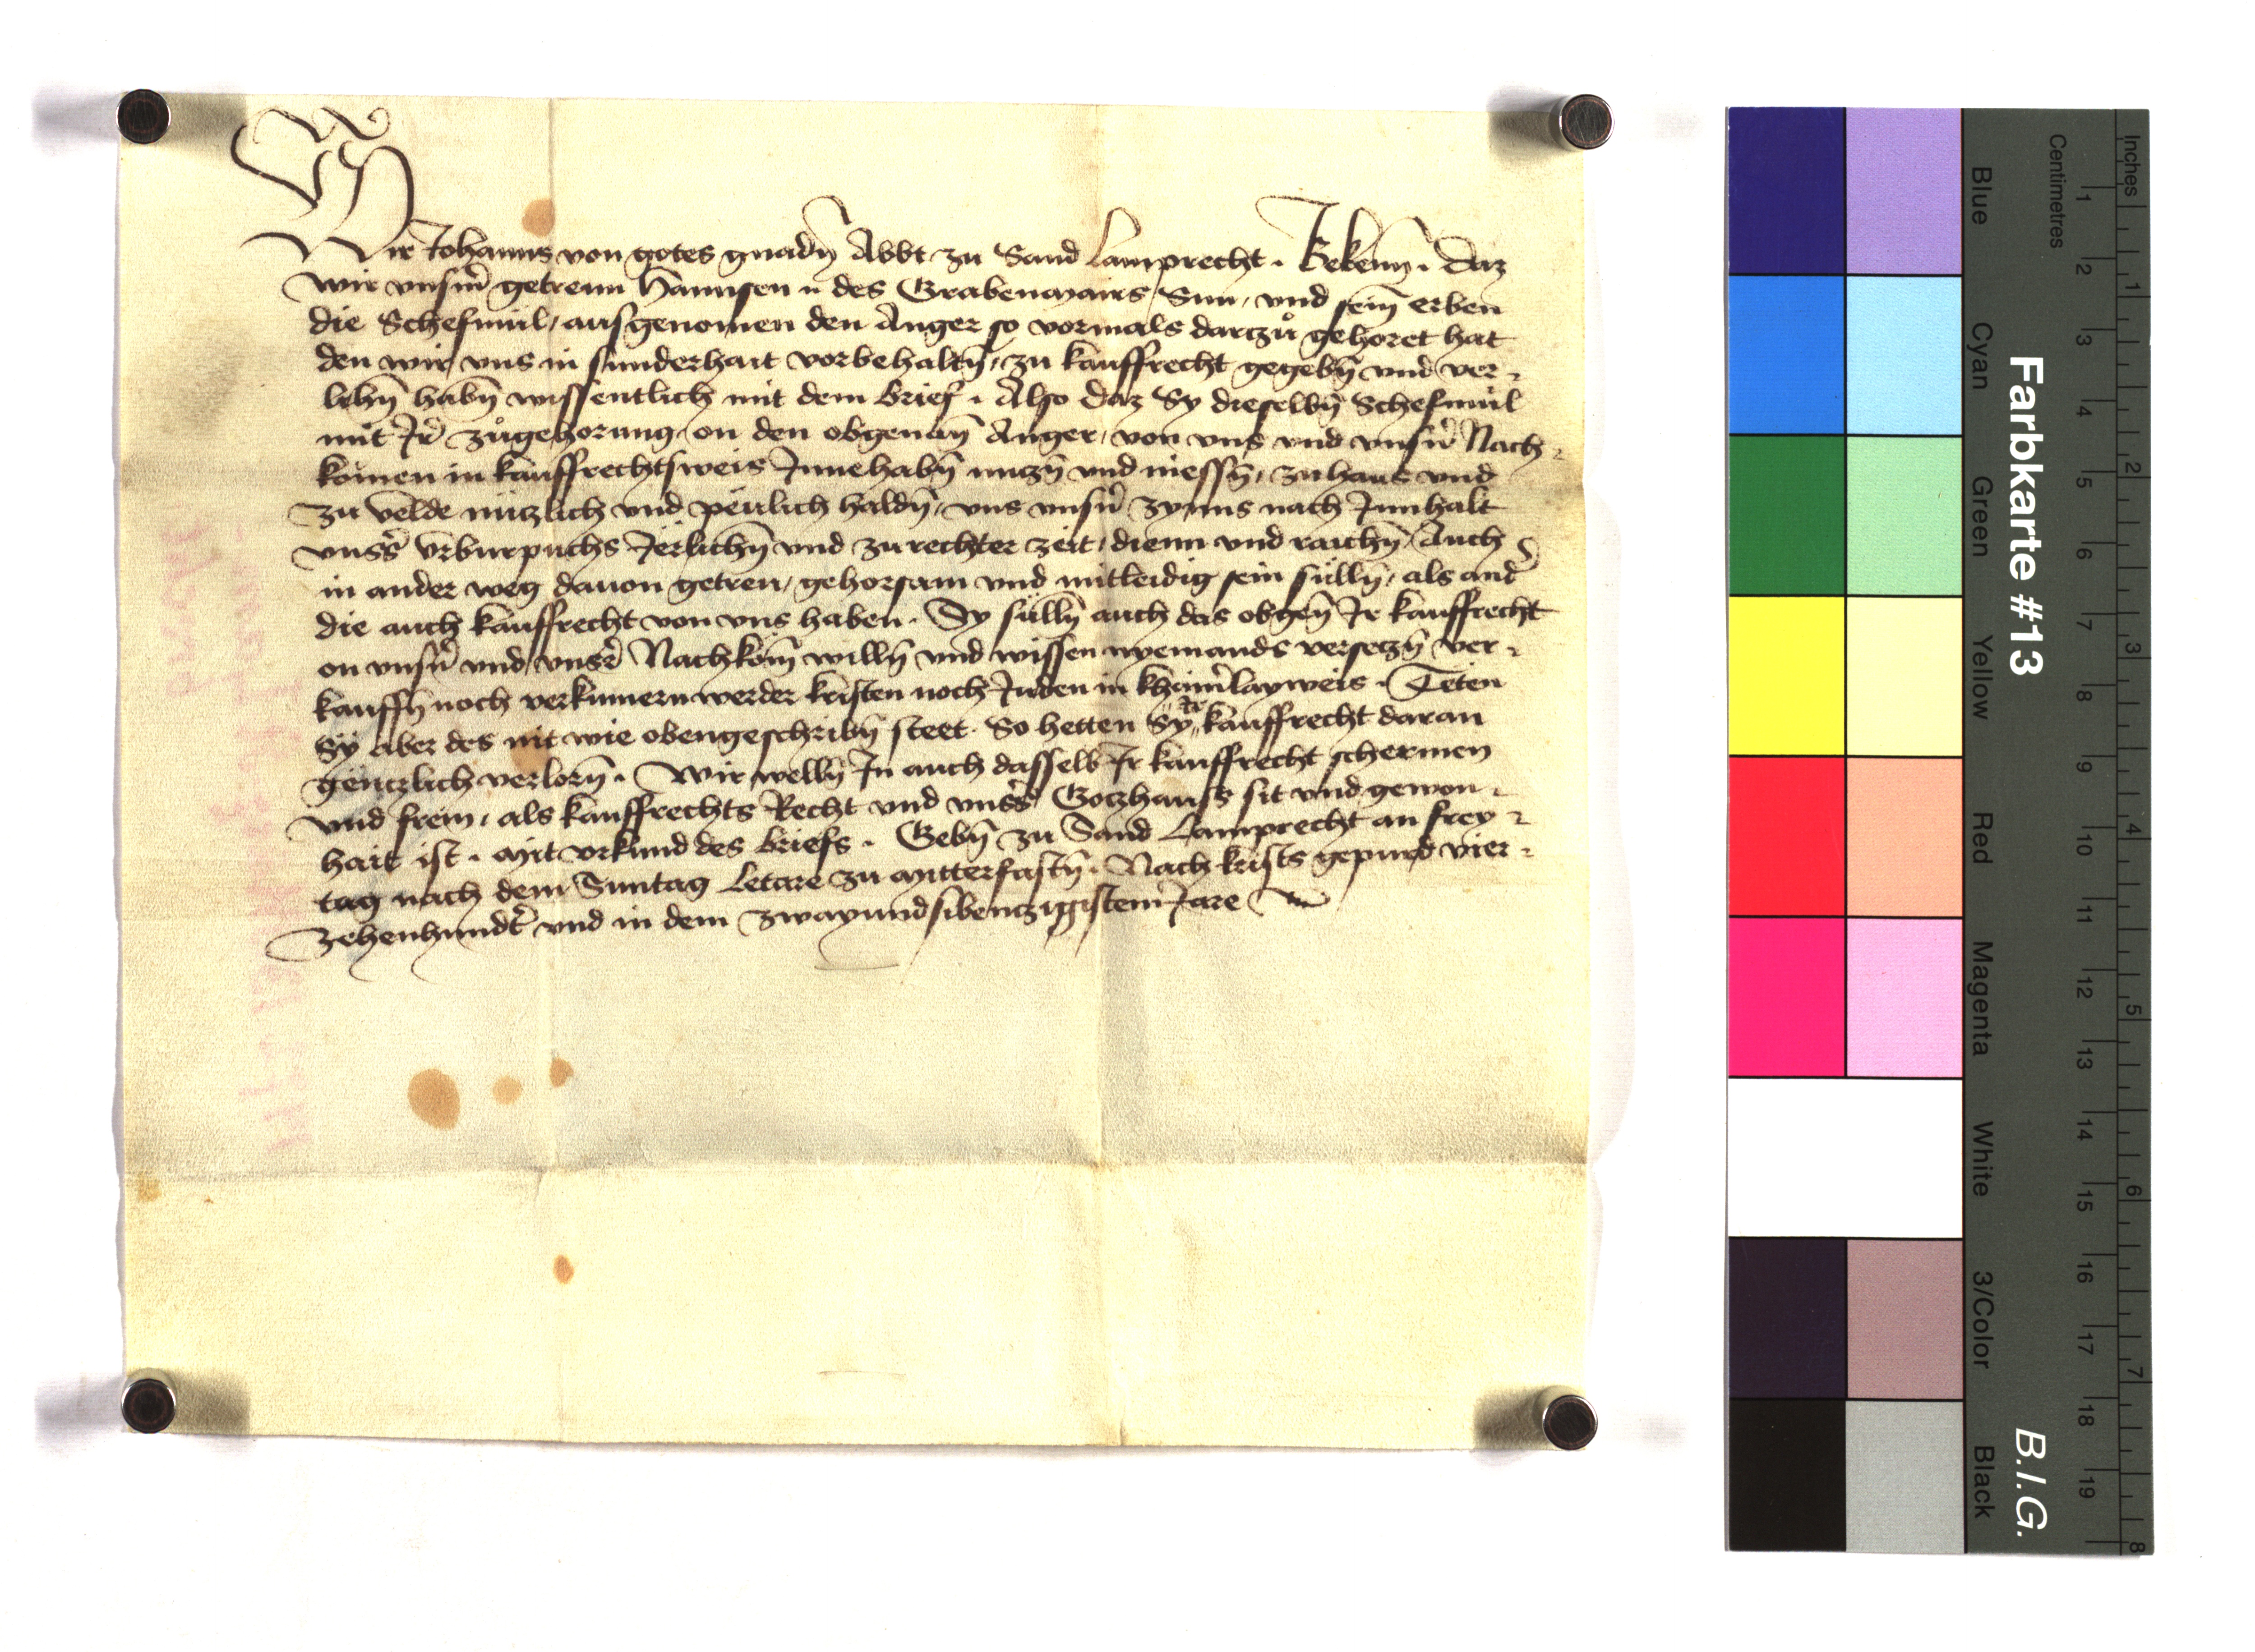 Wir Johanns von gotes gnadn̄ Abbt zu Sand Lamprecht . Bekenn̄ . daz
wir vnsm̄ getrewn Hannsen des Grabenmairs Sun / vnd sein̄ erben
die Schefmül / ausgenomen den Anger so vormals darzů gehoret hat
den wir vns in sunderhait vorbehaltn̄ / zu kauffrecht gegebn̄ vnd ver
lihn̄ habn̄ wissentlich mit dem brief . Also daz Sy dieselbn̄ Schefmül
mit Jr̄ zůgehorung / on den obgenan̄ Anger / von vns vnd vnsn̄ Nach
komen in kauffrechtsweis Jnnehabn̄ nuzn̄ vnd niessn̄ / zu haus vnd
zu velde nüczlich vnd peülich haldn̄ / vns vnsn̄ zynns nach Jnnhalt
vnss̄ vrburpuchs Jërlichn̄ vnd zu rechter zeit / dienn vnd raichn̄ / Auch
in ander weg dauon getreu / gehorsam vnd mitleidig sein sülln̄ / als and̄
die auch kauffrecht von vns haben . Sy sülln̄ auch das obgen̄ Jr kauffrecht
on vnsn̄ vnd vnsr̄ Nachkom̄ willn̄ vnd wissen nyemands verseczn̄ ver
kauffn̄ noch verkumern werder kristen noch Juden in kheinr̄layweis . Teten
Sÿ aber des nit wie obengeschribn̄ steet . So hetten Sy Jr kauffrecht daran
genczlich verlorn̄ . Wir welln̄ Jn auch dasselb Jr kauffrecht schermen
vnd frein / als kauffrechts Recht vnd vnss̄ Goczhauss sit vnd gewon
hait ist . mit vrkund des briefs . Gebn̄ zu Sand Lamprecht an frey
tag nach dem Suntag Letare zu mitterfastn̄ . Nach krists gepurd vier
zehenhundt̄ vnd in dem zwayundsibenczigistem Jare
Farbkarte #13
B.I.G.
Inches
Centimetres
1 2 3 4 5 6 7 8
1 2 3 4 5 6 7 8 9 10 11 12 13 14 15 16 17 18 19
Blue
Cyan
Green
Yellow
Red
Magenta
White
3/Color
Black